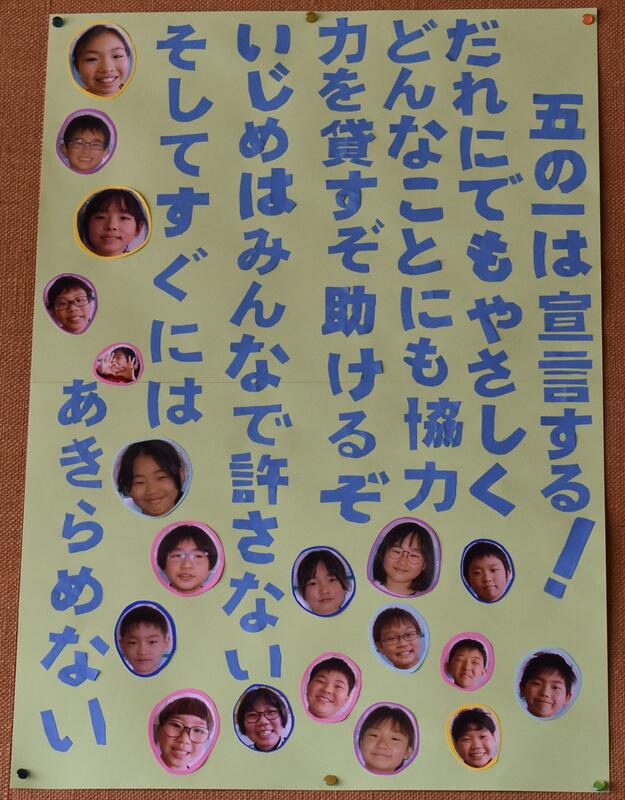 五の一は宣言する!
だれにでもやさしく
どんなことにも協力
力を貸すぞ助けるぞ
いじめはみんなで許さない
そしてすぐには
あきらめない